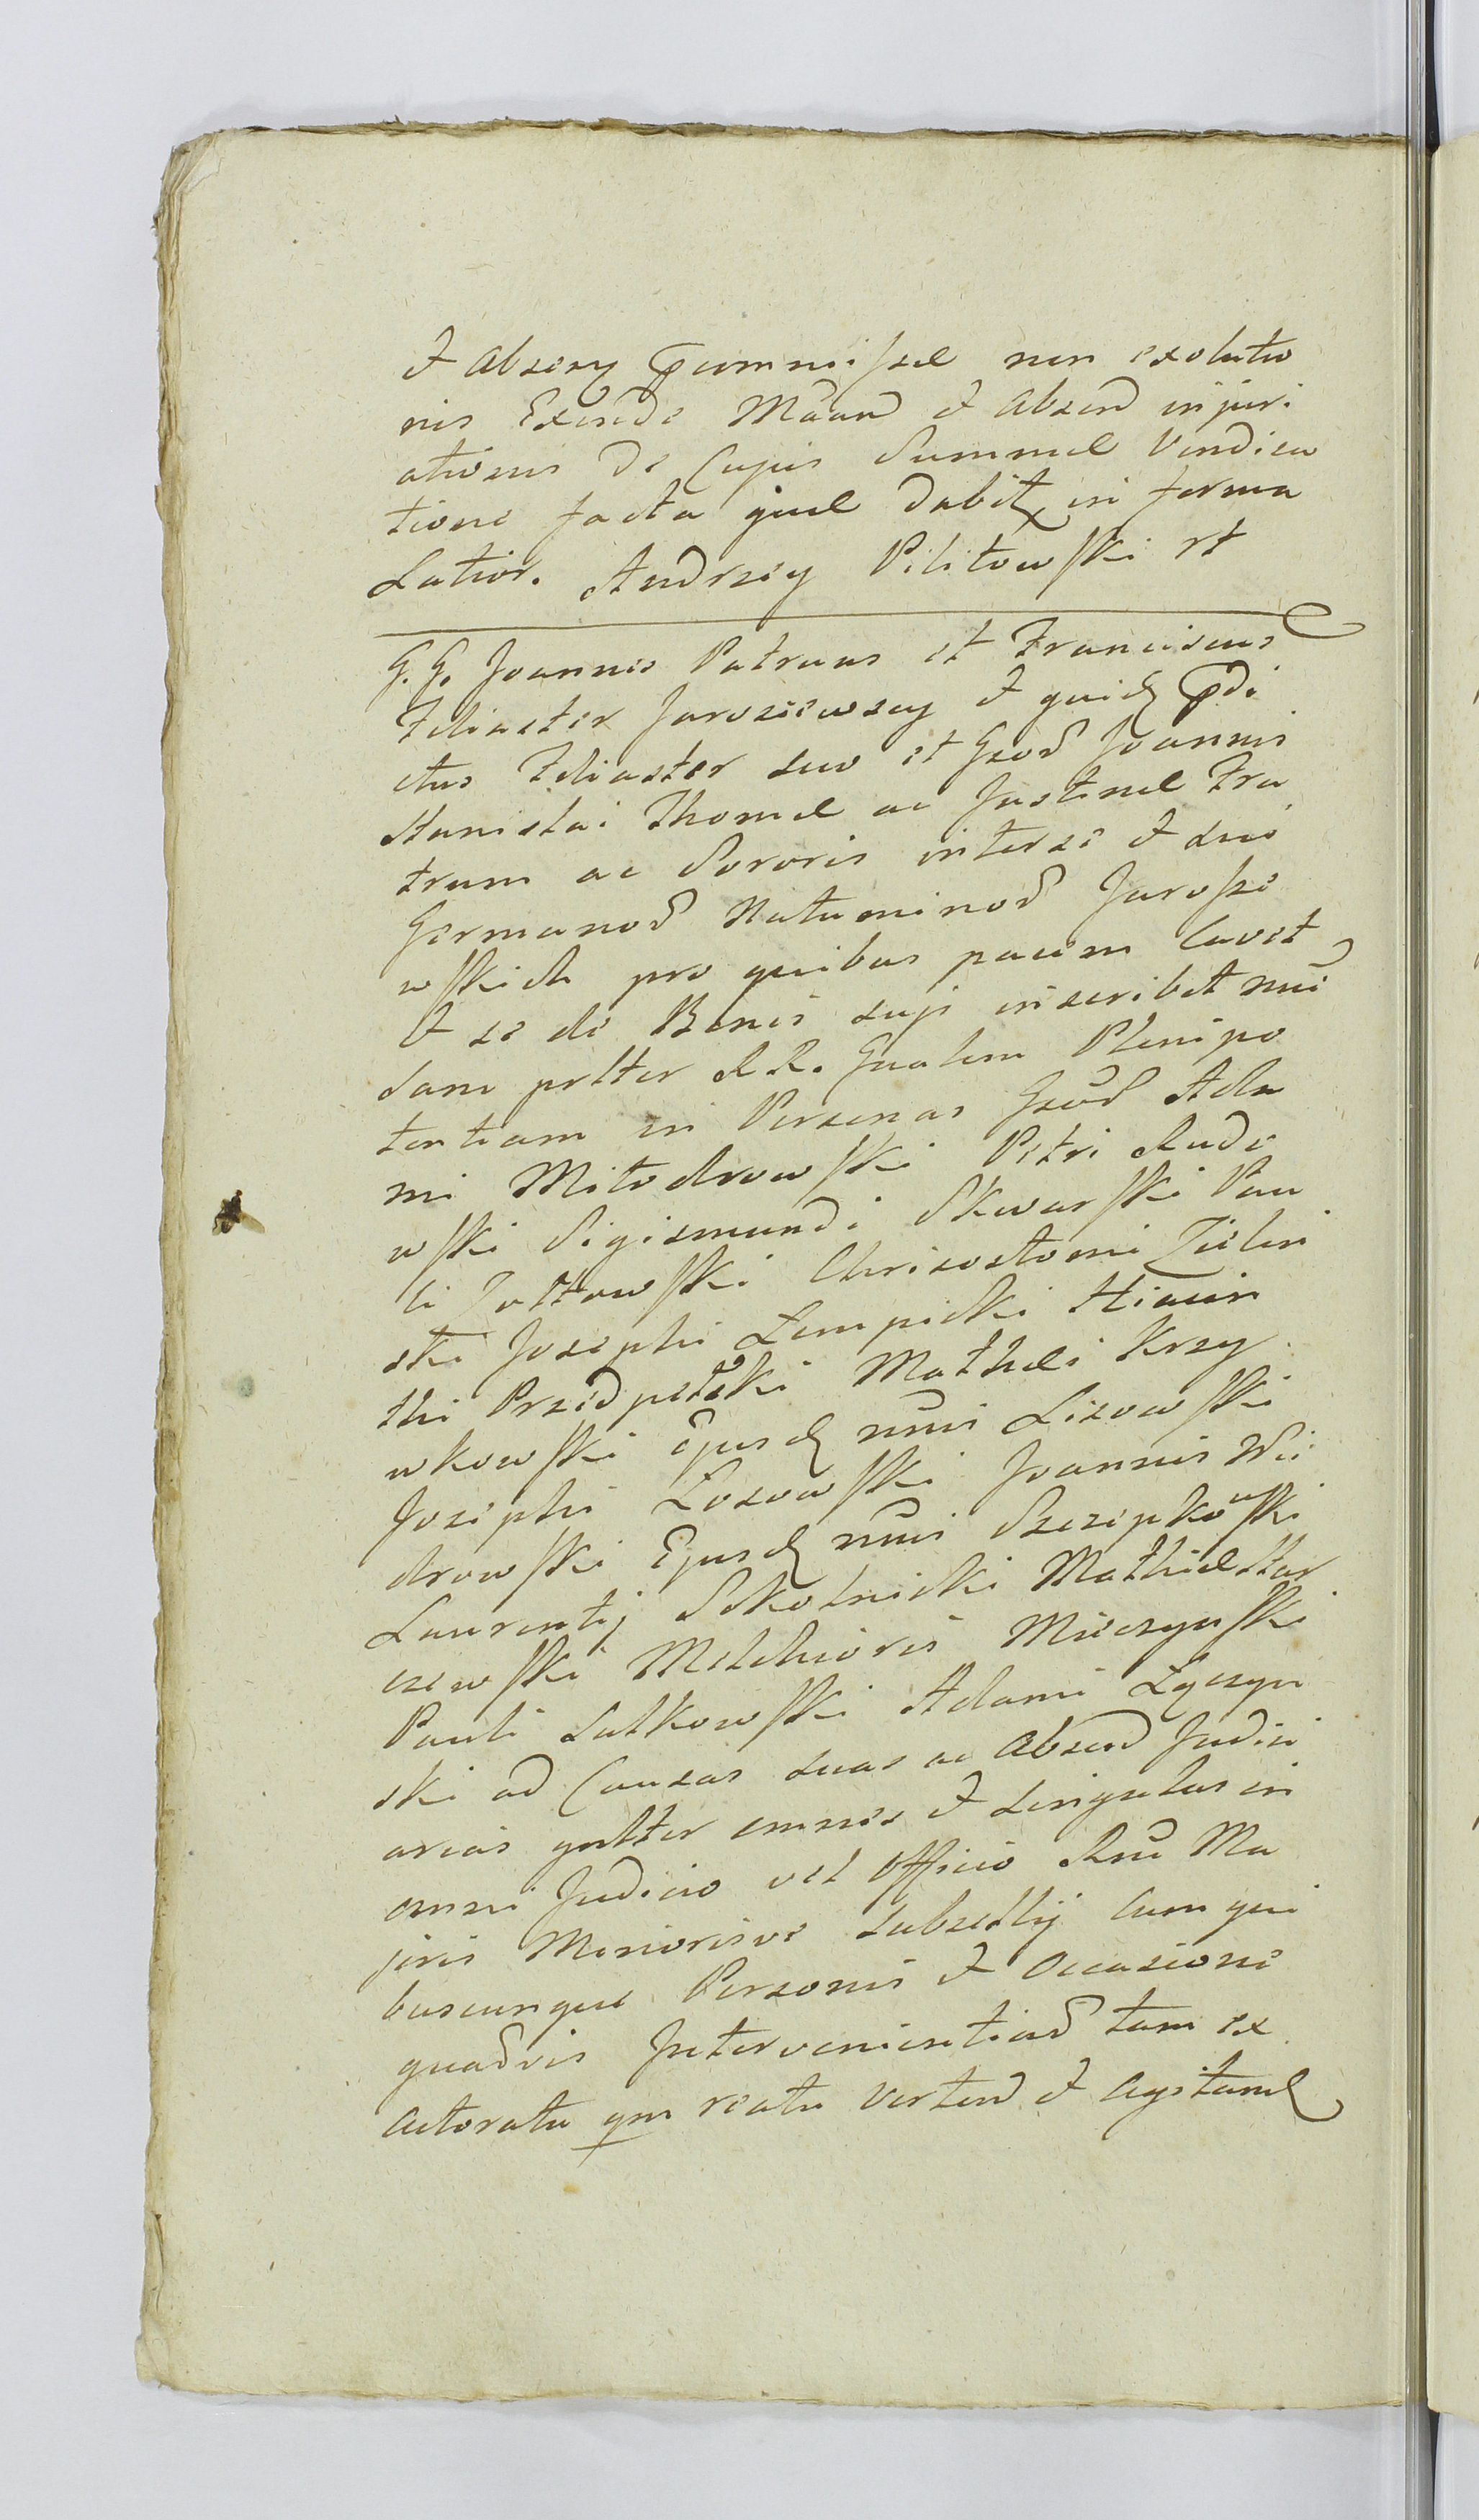 et Absenq Promissae non exolutio
nis Exinde Maand et Absend injuri
ationis de Cujus Summae Vendica
tione facta quae dabit in forma
Latior. Andrzey Pilitowski rt
G. G. Joannes Patruus et Franciscus
Filiaster Jaroszewscy et quidq Pdi
ctus Filiaster suo et Gsod Joannis
Stanislai Thomae ac Justinae Fra
trum ac Sororis interse et suo
Germanod Natuminod Jarosze
wskich pro quibus pacem Cavet
et se de Bonis suji inscribet nui
dane pltter RR. Gnalem Plenipo
tentiam in Personas Gsod Ada
mi Mitodrowski Petri Rude
wski Sigismundi Skwarski Pau
li Zottowski Chrisostomi Zielin
ski Josephi Lempicki Hiacin
thi Przedpełski Mathei Krzy
wkowski Ejusd nuis Lisowski
Josephi Łosowski Joannis Wi
drowski Ejusd nuis Szczepkowski
Laurentij Skolnicki Mathiae Star
czewski Melchioris Mieczynski
Pauli Lutkowski Adami Łęczyn
ski ad Causas suas ac Absend Judici
arias gnltter omnes et singulas in
omni Judicio vel Officio Rni Ma
joris Minorisve Subsellij Cum qui
buscunque Personis et Occasione
quadvis Intervenientiad tam ex
Actoratu qm reatu Vertend et Agitand